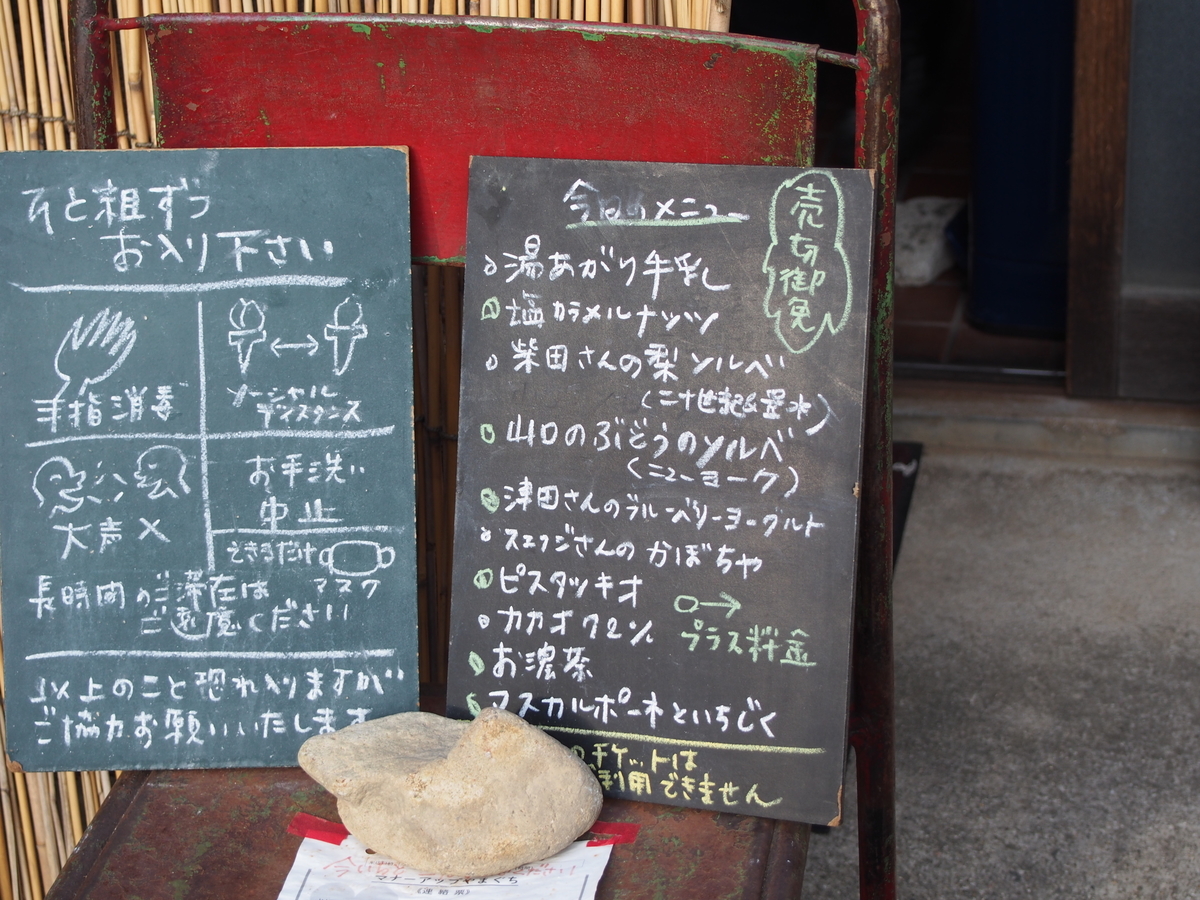 ひと組ずつ
お入り下さい
手指消毒
ソーシャル
ディスタンス
大声×
お手洗い
中止
できるだけ
マスク
長時間のご滞在は
ご遠慮ください
以上のこと恐れ入りますが
ご協力お願いいたします
今日のメニュー
売切御免
湯あがり牛乳
塩カラメルナッツ
柴田さんの梨ソルベ
(二十世紀&豊水)
山口のぶどうのソルベ
(ニューヨーク)
津田さんのブルーベリーヨーグルト
スエツジさんのかぼちゃ
ピスタッキオ
カカオ72%
→
プラス料金
お濃茶
マスカルポーネといちじく
のチケットは
利用できません
マナーアップやまぐち